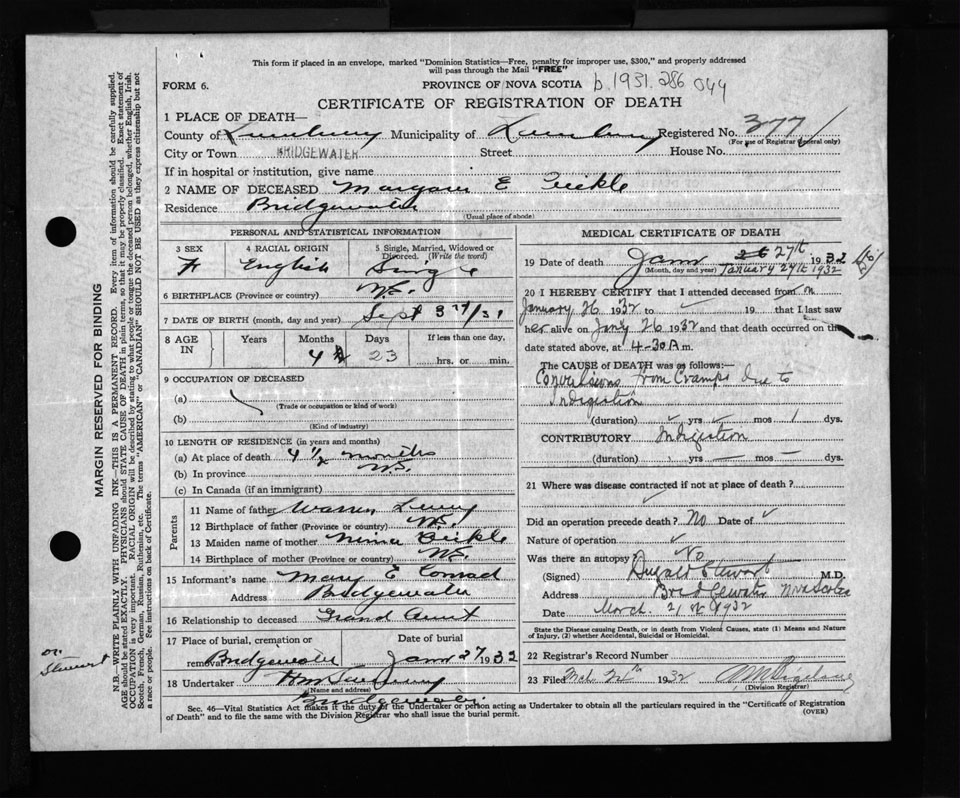 This form if placed in an envelope, marked "Dominion Statistics—Free, penalty for improper use, $300," and properly addressed
will pass through the Mail "FREE"
FORM 6.
PROVINCE OF NOVA SCOTIA b.1931.286 044
CERTIFICATE OF REGISTRATION OF DEATH
1 PLACE OF DEATH—
County of Lunenburg Municipality of Lunenburg Registered No. 377
(For use of Registrar General only)
City or Town BRIDGEWATER Street House No.
If in hospital or institution, give name
2 NAME OF DECEASED Margarie E
Residence Bridgewater
(Usual place of abode)
PERSONAL AND STATISTICAL INFORMATION
3 SEX 4 RACIAL ORIGIN 5 Single, Married, Widowed or Divorced. (Write the word)
F English Single
6 BIRTHPLACE (Province or country) N.S.
7 DATE OF BIRTH (month, day and year) Sept 3rd/31
8 AGE IN Years Months Days If less than one day,
4 23 hrs. or min.
9 OCCUPATION OF DECEASED
(a)
(Trade or occupation or kind of work)
(b)
(Kind of industry)
10 LENGTH OF RESIDENCE (in years and months)
(a) At place of death 4 1/2 months
(b) In province N.S.
(c) In Canada (if an immigrant)
Parents
11 Name of father Warren
12 Birthplace of father (Province or country) N.S.
13 Maiden name of mother Nina
14 Birthplace of mother (Province or country) N.S.
15 Informant's name Mary E Conrad
Address Bridgewater
16 Relationship to deceased Grand Aunt
17 Place of burial, cremation or removal Bridgewater Date of burial Jan 27 1932
18 Undertaker
(Name and address)
Bridgewater
MEDICAL CERTIFICATE OF DEATH
19 Date of death Jany 26 27th 1932
(Month, day and year) January 27th 1932
20 I HEREBY CERTIFY that I attended deceased from
January 26 1932 to 19 that I last saw
her alive on Jany 26 1932 and that death occurred on the
date stated above, at 4-30 A m.
The CAUSE OF DEATH was as follows:—
Convulsions from Cramps due to
Indigestion
(duration) yrs mos 1 dys.
CONTRIBUTORY Indigestion
(duration) yrs — mos — dys.
21 Where was disease contracted if not at place of death?
Did an operation precede death? No Date of
Nature of operation
Was there an autopsy No
(Signed) Dugald Stewart M.D.
Address Bridgewater Nova Scotia
Date March 21st 1932
State the Disease causing Death, or in death from Violent Causes, state (1) Means and Nature of Injury, (2) whether Accidental, Suicidal or Homicidal.
22 Registrar's Record Number
23 Filed Mch 24th 1932
(Division Registrar)
Sec. 46—Vital Statistics Act makes it the duty of the Undertaker or person acting as Undertaker to obtain all the particulars required in the "Certificate of Registration
of Death" and to file the same with the Division Registrar who shall issue the burial permit.
(OVER)
MARGIN RESERVED FOR BINDING
N.B.—WRITE PLAINLY WITH UNFADING INK—THIS IS A PERMANENT RECORD. Every item of information should be carefully supplied.
AGE should be stated EXACTLY. PHYSICIANS should STATE CAUSE OF DEATH in plain terms, so that it may be properly classified. Exact statement of
OCCUPATION is very important. RACIAL ORIGIN will be described by stating to what people or tongue the deceased person belonged, whether English, Irish,
Scotch, French, German, Russian, Ruthenian, etc. The terms "AMERICAN" or "CANADIAN" SHOULD NOT BE USED as they express citizenship but not
a race or people. See instructions on back of Certificate.
Stewart